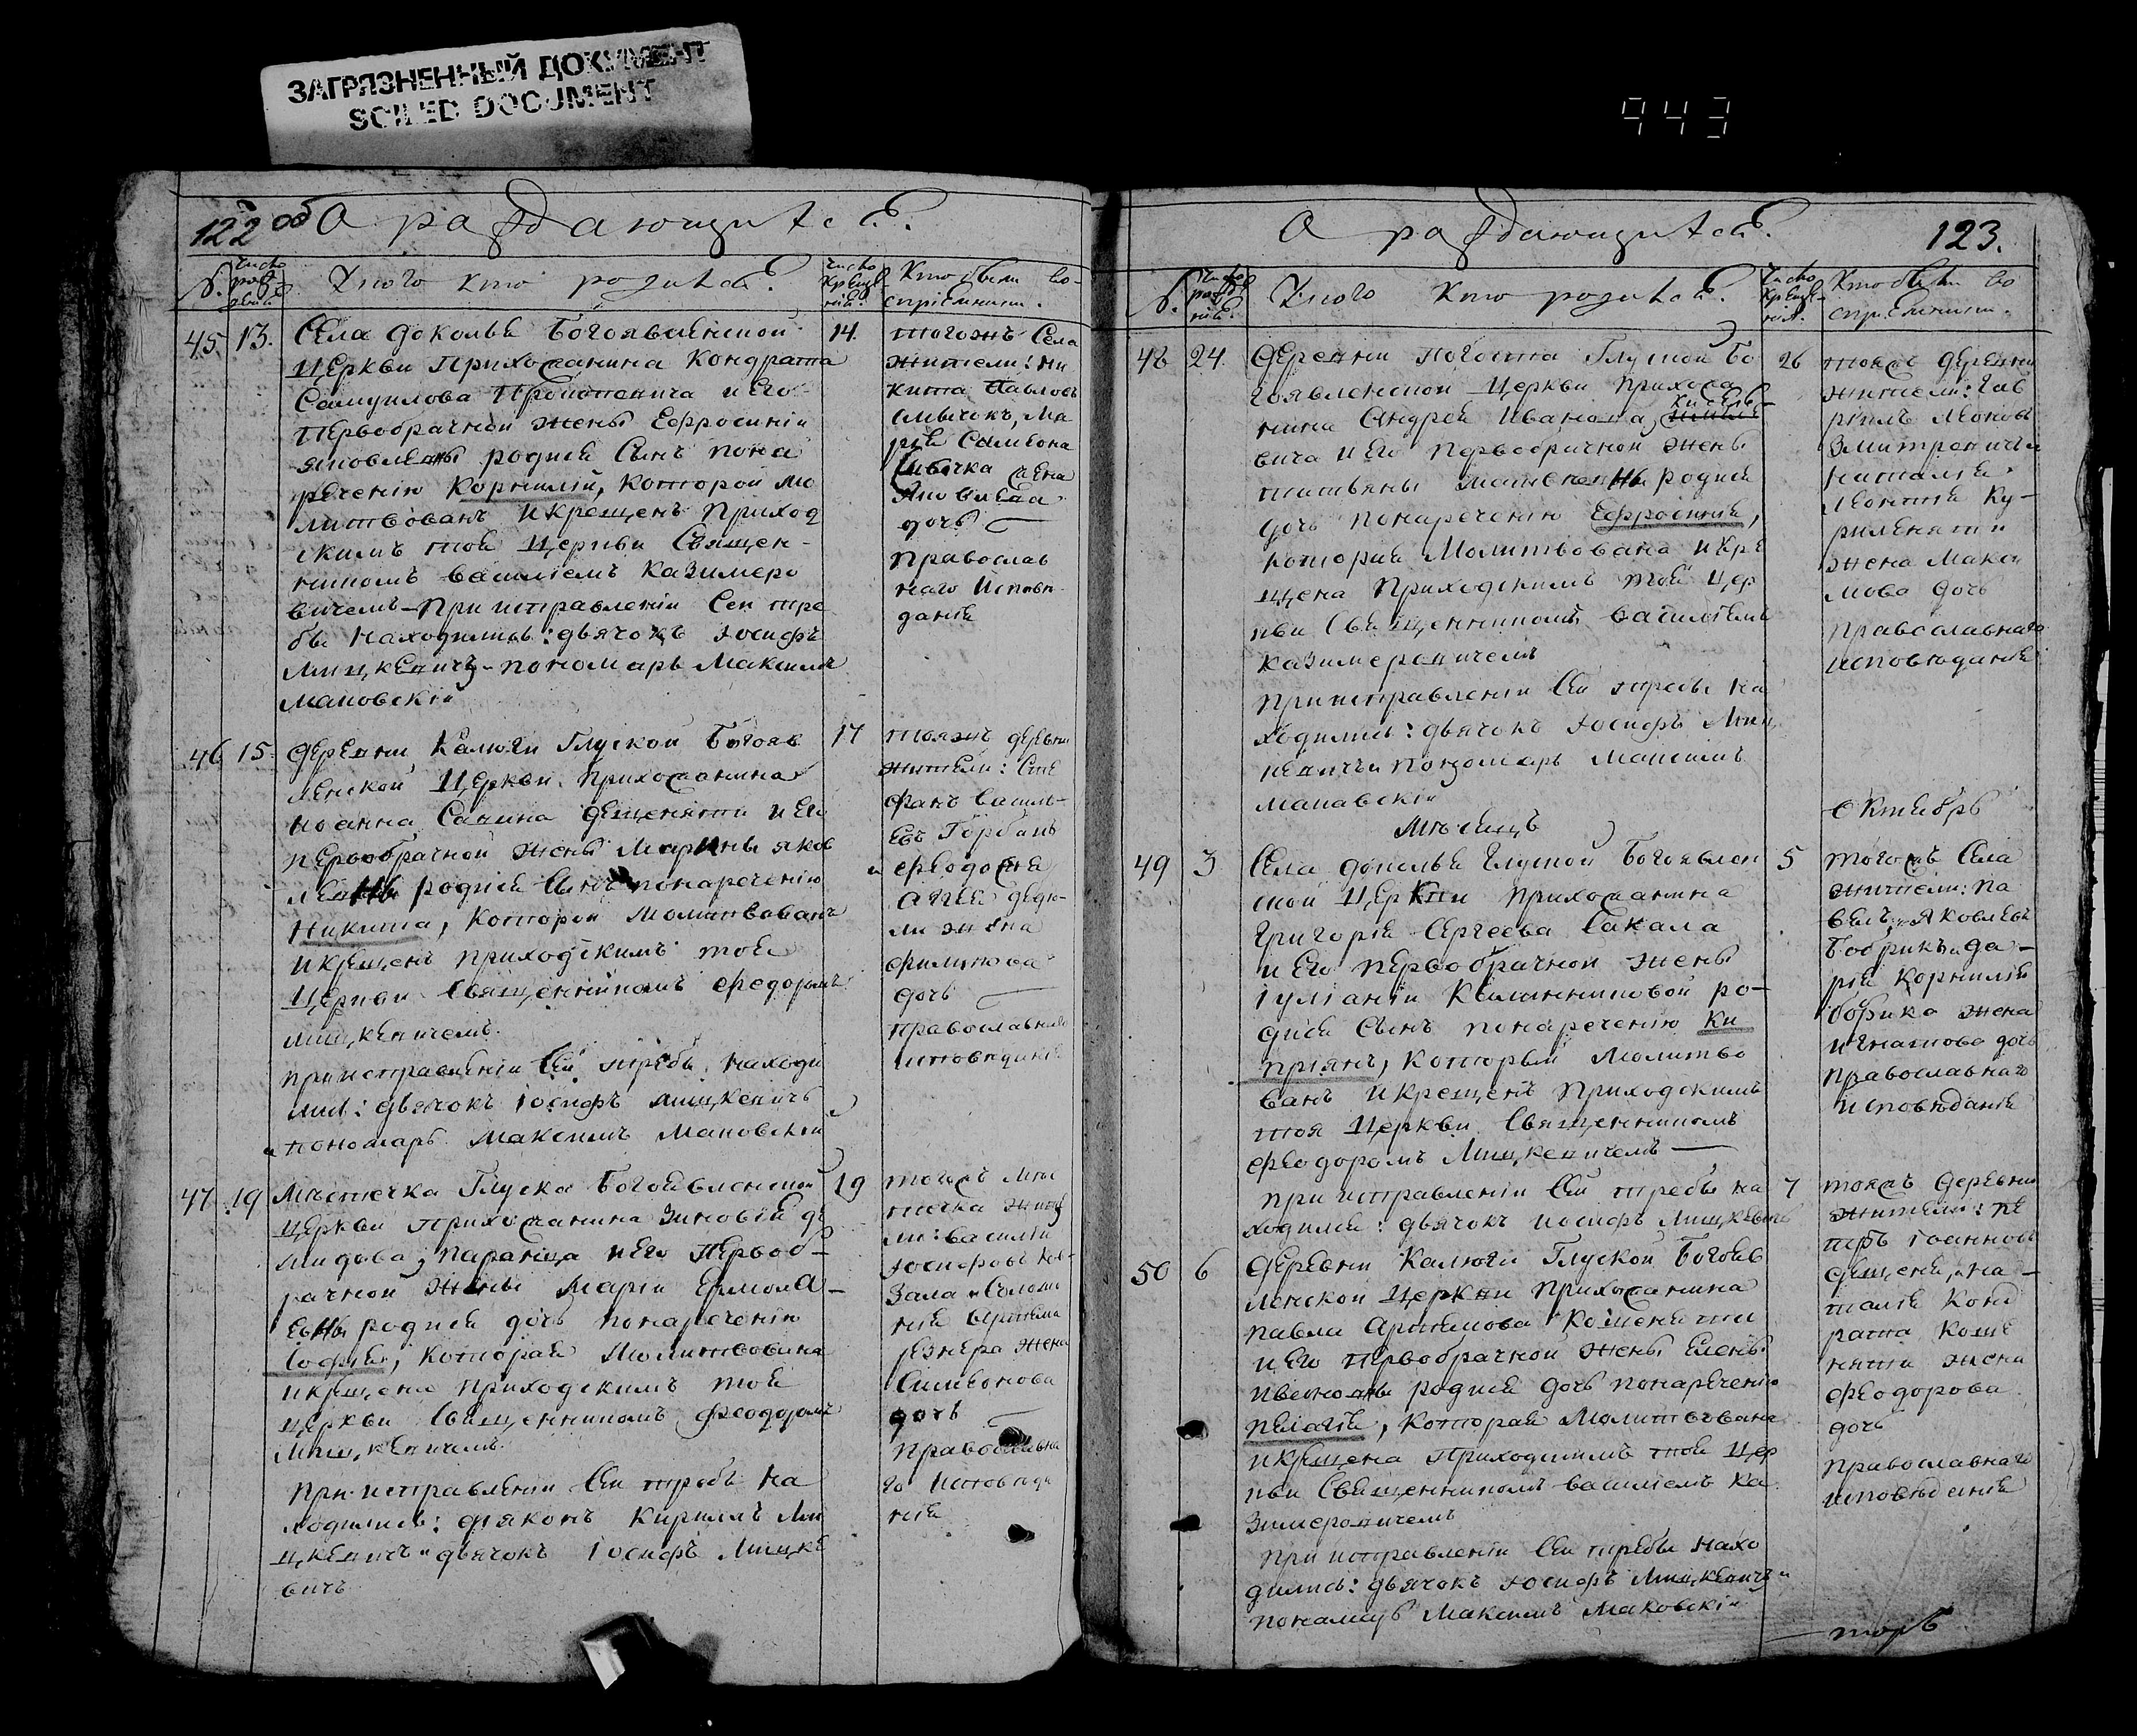 ЗАГРЯЗНЕННЫЙ ДОКУМЕНТ
SOILED DOCUMENT
943
122 об О раждающихся.
№. Число рождения У кого кто родился. Число крещения Кто были восприемники.
45 13. Села Доколья Богоявленской
Церкви Прихожанина Кондрата
Самуилова и Его
Первобрачной жены Ефросинiи
Яковлевны родися Сынъ пона
реченiю Корнилiй, которой мо
литвованъ и крещенъ Приход
скимъ тоя Церкви Священ-
никомъ Василiемъ Казимеро
вичемъ - При исправленiи Сей тре
бы находились: дьячокъ Iосифъ
Мицкевичъ - пономарь Максимъ
Маковскiй
14. тогожъ Села
жители: Ни
кита Павловъ
Ма
рiя Самсона
жена
Яковлева
дочь
Православ
наго Исповѣ
данiя
46 15. Деревни Калюги Глуской Богояв
ленской Церкви Прихожанина
Iоанна Савина Дещеняти и Его
Первобрачной жены Марины Яков
левны родися Сынъ понареченiю
Никита, которой Молитвованъ
и крещенъ приходскимъ тоя
Церкви Священникомъ Федоромъ
Мицкевичемъ.
При исправленiи Сей требы находи
лись: дьячокъ Iосифъ Мицкевичъ
и пономарь Максимъ Маковскiй
17 тояжъ деревни
жители: Сте
фанъ Василь-
евъ Горбачъ
и Феодосiя
жена
Филипова
дочь
православнаго
исповѣданiя
47 19 Мѣстечка Глуска Богоявленской
Церкви прихожанина Зиновiя Де
мидова, и Его Первоб-
рачной жены Марiи Ермола-
евны родися дочь понареченiю
Софiя, которая Молитвована
и крещена приходскимъ тоя
церкви Священникомъ Феодоромъ
Мицкевичемъ.
При исправленiи Сей требы на
ходились: дiяконъ Кирилъ Ми
цкевичъ и дьячокъ Iосифъ Мицке
вичъ
19 тогожъ мѣс
течка жите
ли: Василiй
Iосифовъ Ко-
зала и Соломо
нiя
жена
Симеонова
дочь
Православна
го Исповѣда
нiя
О раждающихся. 123.
№. Число рожденiя У кого кто родился. Число крещенiя Кто были восприемники.
48 24. Деревни Погоста Глуской Бо
гоявленской Церкви прихожа
нина Андрея Иванова,
вича и Его Первобрачной жены
Татьяны Матвеевны родися
дочь понареченiю Ефросинiя,
которая Молитвована и кре
щена Приходскимъ тоя Цер
кви Священникомъ Василiемъ
Казимеровичемъ
При исправленiи Сей требы на
ходились: дьячокъ Iосифъ Миц
кевичъ и пономарь Максимъ
Маковскiй
26 тояжъ деревни
жители: Гав
рiилъ Леоновъ
и
Наталiя
Леонтiя Ку-
риленяти
жена Макси
мова дочь
Православнаго
исповѣданiя
Мѣсяцъ Октябрь
49 3 Села Доколья Глуской Богоявлен
ской Церкви прихожанина
Григорiя Сергеева Сакала
и Его первобрачной жены
Iулiанiи Калинниковой ро-
дися Сынъ понареченiю Ки
прiянъ, который Молитво
ванъ и крещенъ Приходскимъ
тоя Церкви Священникомъ
Феодоромъ Мицкевичемъ
При исправленiи Сей требы на
ходились: дьячокъ Iосифъ Мицкевичъ
5 тогожъ Села
жители: Па
велъ Яковлевъ
Бобрикъ и Да-
рiя Корнилiя
Бобрика жена
Игнатова дочь
Православнаго
исповѣданiя
50 6 Деревни Калюги Глуской Богояв
ленской Церкви Прихожанина
Павла Артемова Кошеняти
и Его первобрачной жены Елены
Ивановны родися дочь понареченiю
Пелагiя, которая Молитвована
и крещена Приходскимъ тоя Цер
кви Священникомъ Василiемъ Ка
зимеровичемъ
При исправленiи Сей требы нахо
дились: дьячокъ Iосифъ Мицкевичъ и
пономарь Максимъ Маковскiй
7 тояжъ деревни
жители: Пе
тръ Iоанновъ
и На-
талiя Конд
рата Коше
няти жена
Феодорова
дочь
Православнаго
исповѣданiя